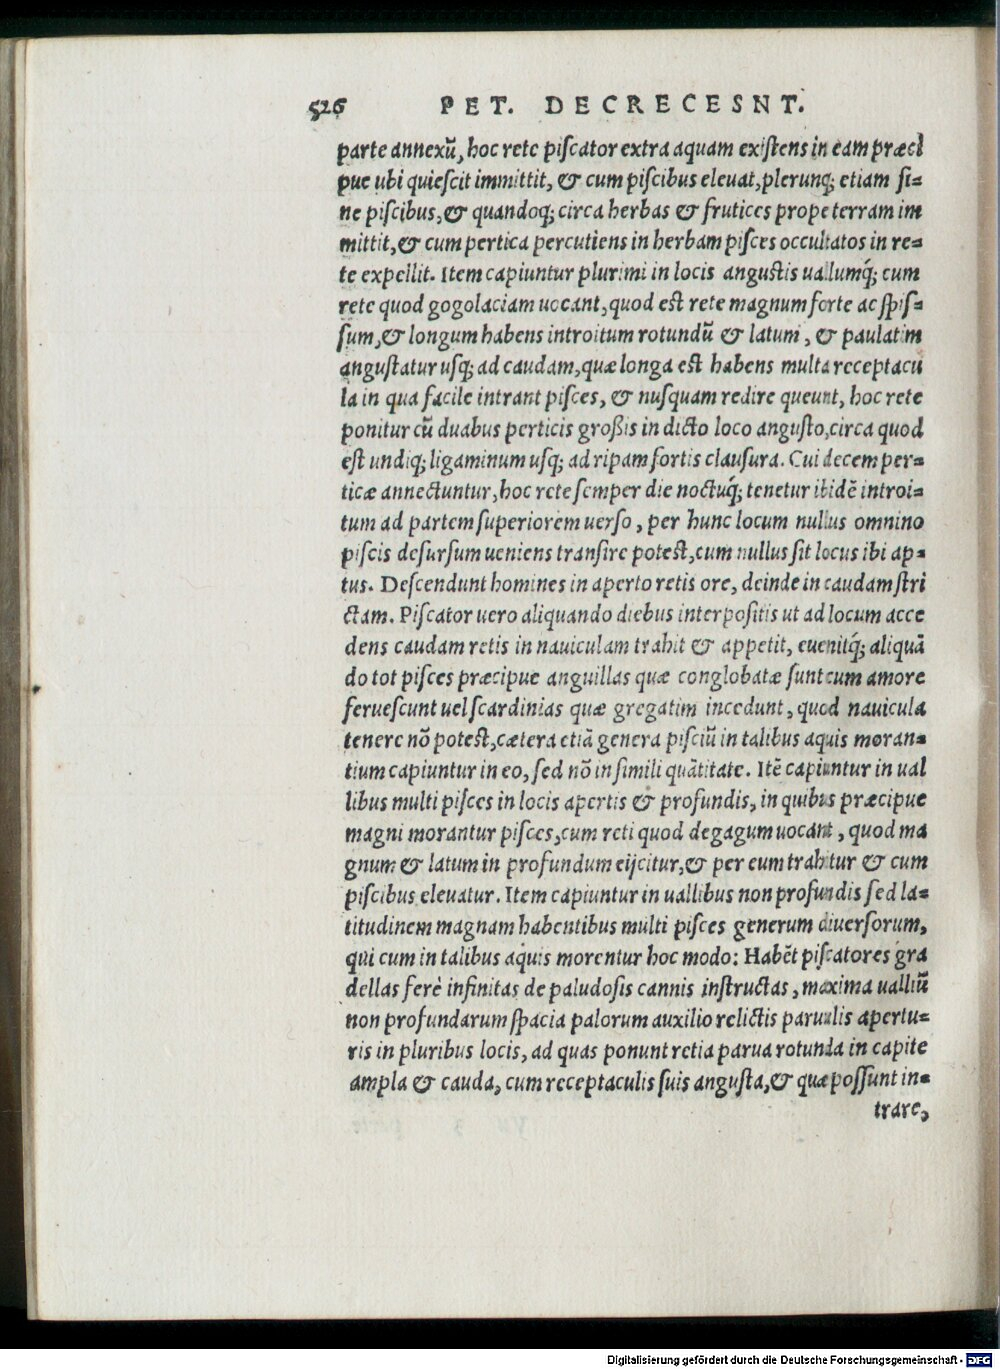 526 PET. DECRECESNT.
parte annexũ, hoc rete piſcator extra aquam exiſtens in eam præci
pue ubi quieſcit immittit, & cum piſcibus eleuat, plerunq; etiam ſi=
ne piſcibus, & quandoq; circa herbas & frutices prope terram im
mittit, & cum pertica percutiens in herbam piſces occultatos in re=
te expellit. Item capiuntur plurimi in locis anguſtis uallumq́; cum
rete quod gogolaciam uocant, quod eſt rete magnum forte ac ſpiſ=
ſum, & longum habens introitum rotundũ & latum, & paulatim
anguſtatur uſq; ad caudam, quæ longa eſt habens multa receptacu
la in qua facile intrant piſces, & nuſquam redire queunt, hoc rete
ponitur cũ duabus perticis groſsis in dicto loco anguſto, circa quod
eſt undiq; ligaminum uſq; ad ripam fortis clauſura. Cui decem per=
ticæ annectuntur, hoc rete ſemper die noctuq́; tenetur ibidẽ introi=
tum ad partem ſuperiorem uerſo, per hunc locum nullus omnino
piſcis deſurſum ueniens tranſire poteſt, cum nullus ſit locus ibi ap=
tus. Deſcendunt homines in aperto retis ore, deinde in caudam ſtri
ctam. Piſcator uero aliquando diebus interpoſitis ut ad locum acce
dens caudam retis in nauiculam trahit & appetit, euenitq́; aliquã
do tot piſces præcipue anguillas quæ conglobatæ ſunt cum amore
ferueſcunt uel ſcardinias quæ gregatim incedunt, quod nauicula
tenere nõ poteſt, cætera etiã genera piſciũ in talibus aquis moran=
tium capiuntur in eo, ſed nõ in ſimili quãtitate. Itẽ capiuntur in ual
libus multi piſces in locis apertis & profundis, in quibus præcipue
magni morantur piſces, cum reti quod degagum uocant, quod ma
gnum & latum in profundum eijcitur, & per eum trahitur & cum
piſcibus eleuatur. Item capiuntur in uallibus non profundis ſed la=
titudinem magnam habentibus multi piſces generum diuerſorum,
qui cum in talibus aquis morentur hoc modo: Habẽt piſcatores gra
dellas ferè infinitas de paludoſis cannis inſtructas, maxima ualliũ
non profundarum ſpacia palorum auxilio relictis paruulis apertu=
ris in pluribus locis, ad quas ponunt retia parua rotunda in capite
ampla & cauda, cum receptaculis ſuis anguſta, & quæ poſſunt in=
trare,
Digitalisierung gefördert durch die Deutsche Forschungsgemeinschaft - DFG